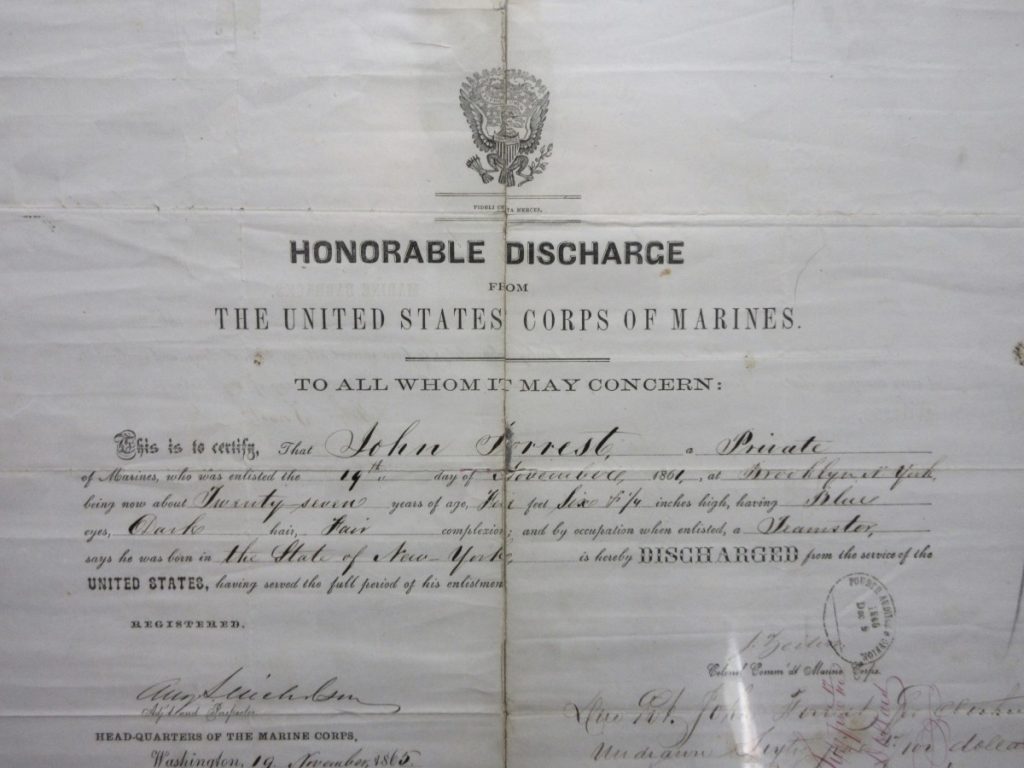 FIDELI CERTA MERCES.
HONORABLE DISCHARGE
FROM
THE UNITED STATES CORPS OF MARINES.
TO ALL WHOM IT MAY CONCERN:
This is to certify, That John Forrest, a Private
of Marines, who was enlisted the 19th day of November, 1861, at Brooklyn N York,
being now about Twenty seven years of age, Five feet Six & 1/4 inches high, having Blue
eyes, Dark hair, Fair complexion; and by occupation when enlisted, a Teamster,
says he was born in the State of New-York, is hereby DISCHARGED from the service of the
UNITED STATES, having served the full period of his enlistment
REGISTERED,
FOURTH AUDITOR'S OFFICE
1865
Dec 9
J. Zeilin
Colonel Comm'dt Marine Corps.
Aug S Nicholson
Adj't and Inspector
HEAD-QUARTERS OF THE MARINE CORPS,
Washington, 19 November, 1865
Due Pt. John Forrest for clothing
Undrawn dollars